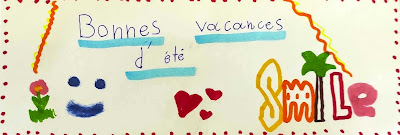 Bonnes vacances
d'été
SmiLe